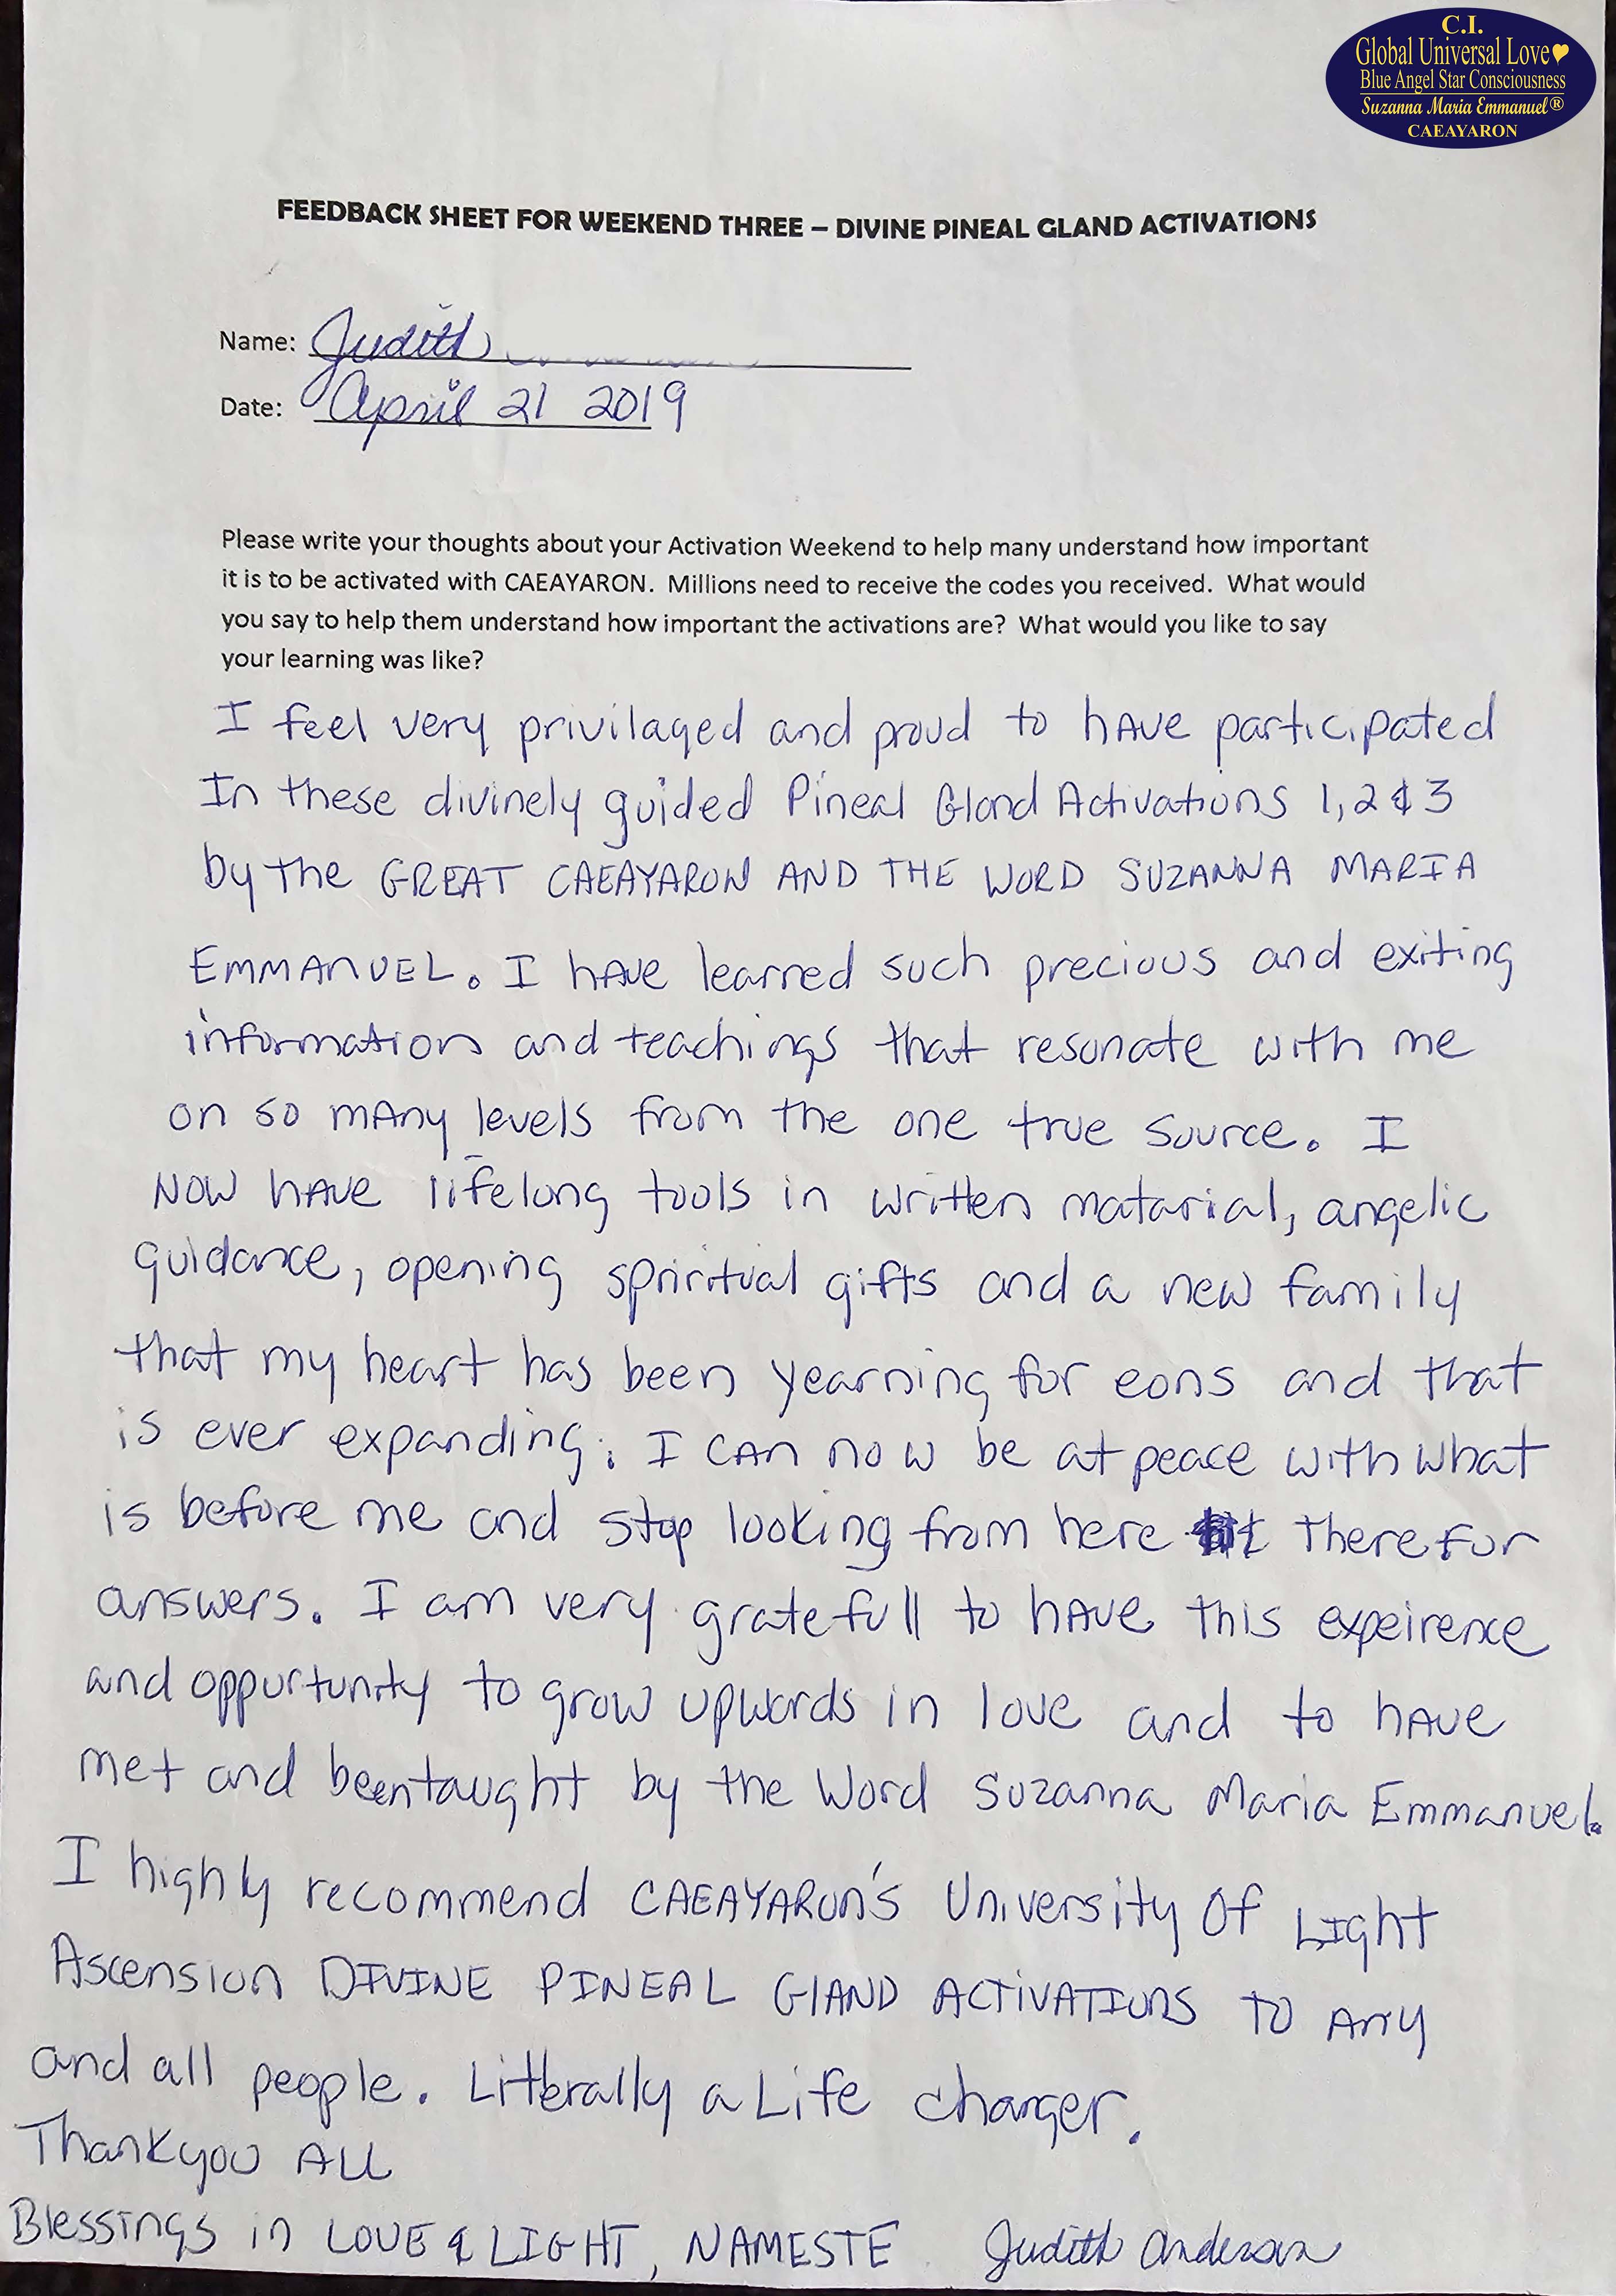 C.I.
Global Universal Love
Blue Angel Star Consciousness
Suzanna Maria Emmanuel®
CAEAYARON
FEEDBACK SHEET FOR WEEKEND THREE – DIVINE PINEAL GLAND ACTIVATIONS
Name: Judith
Date: April 21 2019
Please write your thoughts about your Activation Weekend to help many understand how important
it is to be activated with CAEAYARON. Millions need to receive the codes you received. What would
you say to help them understand how important the activations are? What would you like to say
your learning was like?
I feel very privilaged and proud to hAve participated
In these divinely guided Pineal Gland Activations 1, 2 & 3
by the GREAT CAEAYARON AND THE WORD SUZANNA MARIA
EMMANUEL. I hAve learned such precious and exiting
information and teachings that resonate with me
on so mAny levels from the one true source. I
NOW hAve lifelong tools in written matarial, angelic
guidance, opening spriritual gifts and a new family
that my heart has been yearning for eons and that
is ever expanding. I CAn now be at peace with what
is before me and stop looking from here there for
answers. I am very gratefull to hAve this expeirence
and oppurtunity to grow upwards in love and to hAve
met and been taught by the Word Suzanna Maria Emmanuel.
I highly recommend CAEAYARON'S University Of LIght
Ascension DIVINE PINEAL GlAND ACTiVATIONS TO Any
and all people. Litterally a Life changer.
Thankyou ALL
BlessIngs in LOVE & LIGHT, NAMESTE Judith Anderson